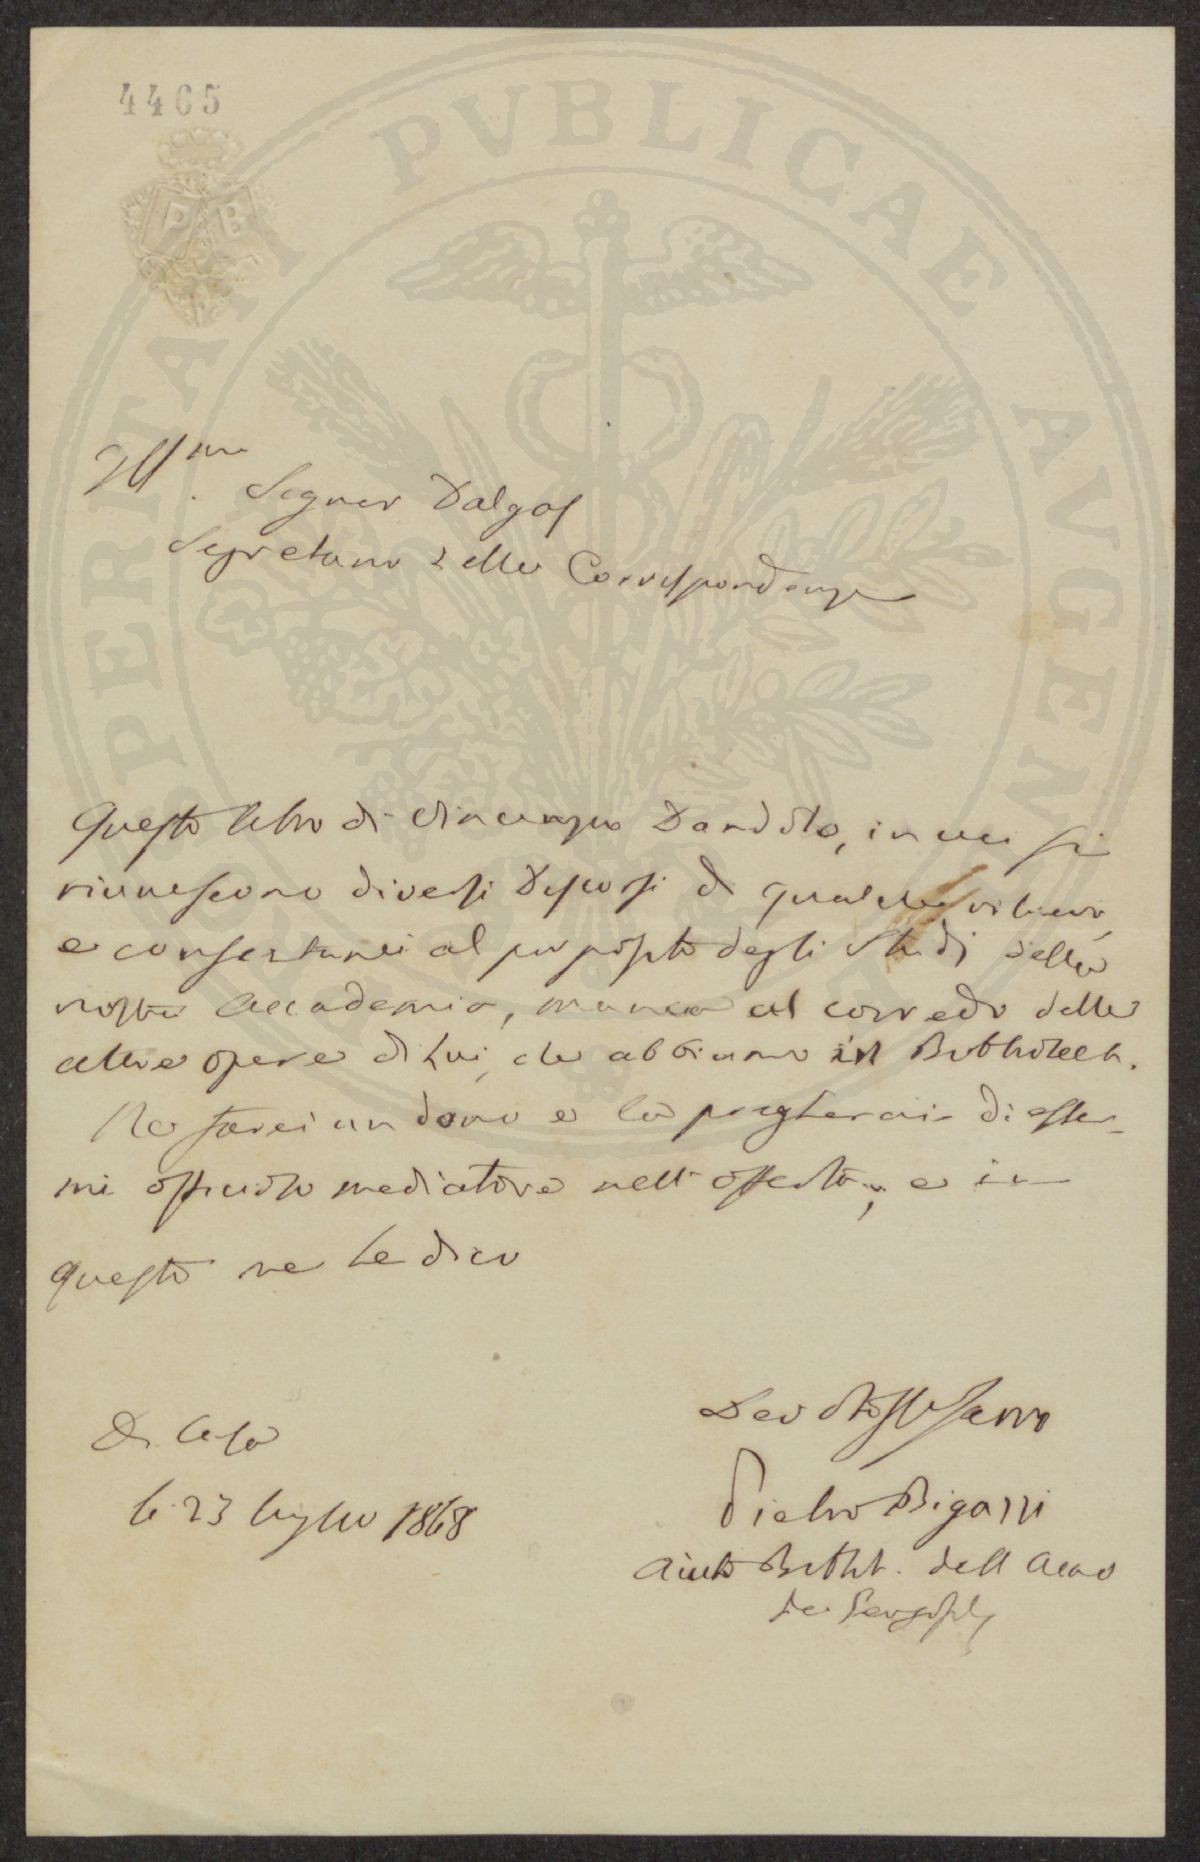 4465
PROSPERITATI PVBLICAE AVGENDAE
PB
Ill.mo
Signor Dalgas
Segretario delle Corrispondenze
Questo libro di Vincenzo Dandolo, in cui si
riuniscono diversi Discorsi di qualche rilievo,
e consentanei al proposito degli Studi della
nostra Accademia, manca al corredo delle
altre opere di Lui, che abbiamo in Bibliotech.
Ne farei un dono e la pregherei di esser-
mi officioso mediatore nell'offerta; e in
questo me Le dico
Di Casa
li 23 luglio 1868
Devotissi Servo
Pietro Bigazzi
aiuto Biblit. dell Acca
de Georgofili